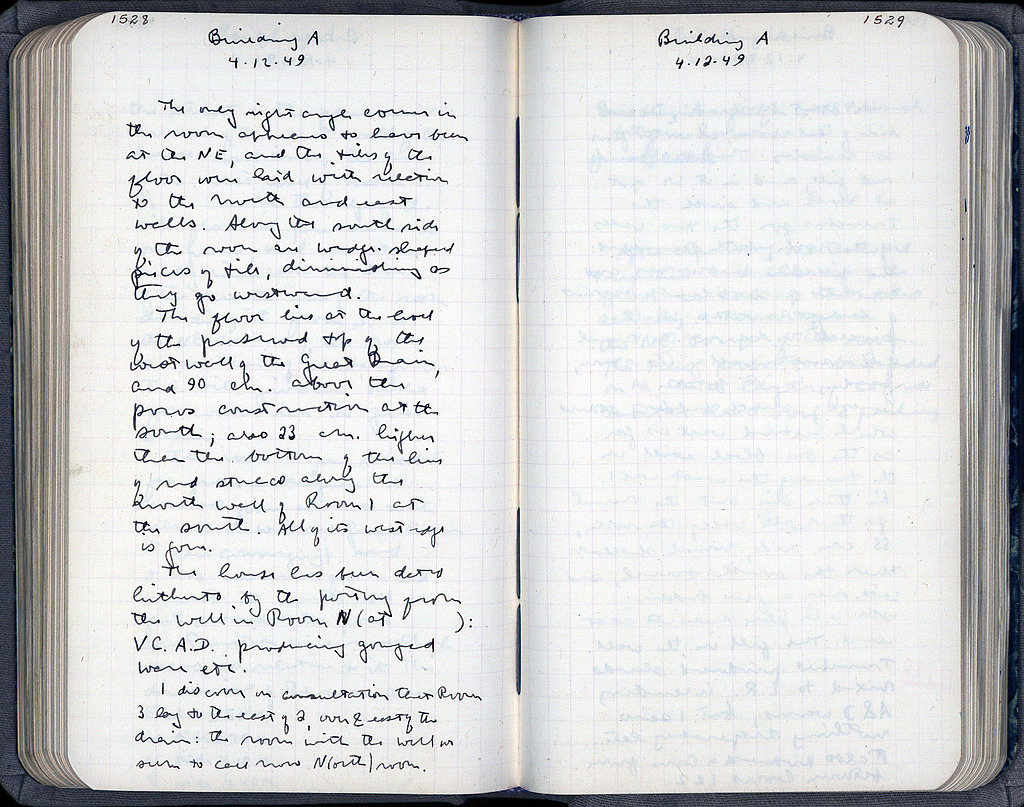 1528
Building A
4.12.49
The only right angle corner in
the room appears to have been
at the NE, and the tiles of the
floor were laid with relation
to the north and east
walls. Along the south side
of the room are wedge-shaped
pieces of tile, diminishing as
they go westward.
The floor lies at the level
of the preserved top of the
west wall of the Great Drain,
and 90 cm. above the
poros construction at the
south; also 23 cm. higher
than the bottom of the line
of red stucco along the
north wall of Room 1 at
the south. All of its west edge
is gone.
The house has been dated
hitherto by the pottery from
the well in Room N (at ):
V C. A.D. producing gouged
ware etc.
I discover on consultation that Room
3 lay to the east of 2, over & east of the
drain: the room with the well we
seem to call now N(orth) room.
1529
Building A
4.12.49